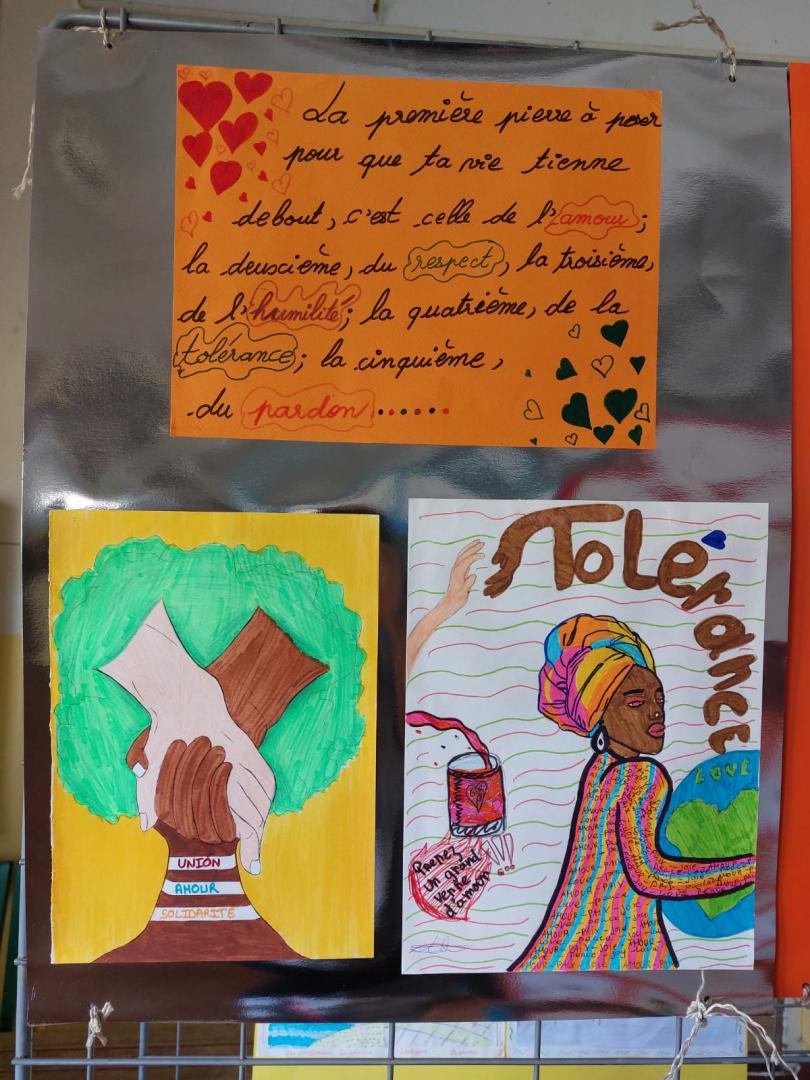 La première pierre à poser
pour que ta vie tienne
debout, c'est celle de l'amour;
la deuxième, du respect, la troisième,
de l'humilité; la quatrième, de la
tolérance; la cinquième,
du pardon.......
UNION
AMOUR
SOLIDARITÉ
Tolérance
LOVE
Prenez
un grand
verre
d'amour